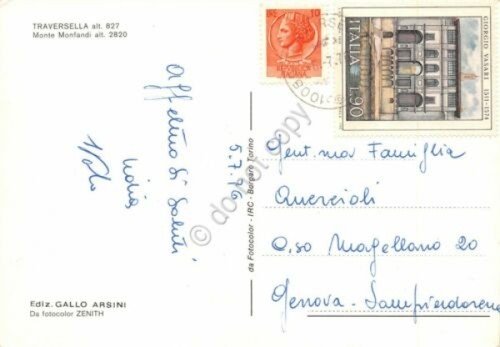 TRAVERSELLA alt. 827
Monte Monfandi alt. 2820
5.7.76
Affettuosi Saluti
Lidia
Ediz. GALLO ARSINI
Da fotocolor ZENITH
da Fotocolor - IRC - Borgaro Torino
10
ITALIA
ITALIA
L.90
GIORGIO VASARI 1511-1574
Gent.ma Famiglia
Quercioli
C.so Magellano 20
Genova - Sampierdarena
do not copy